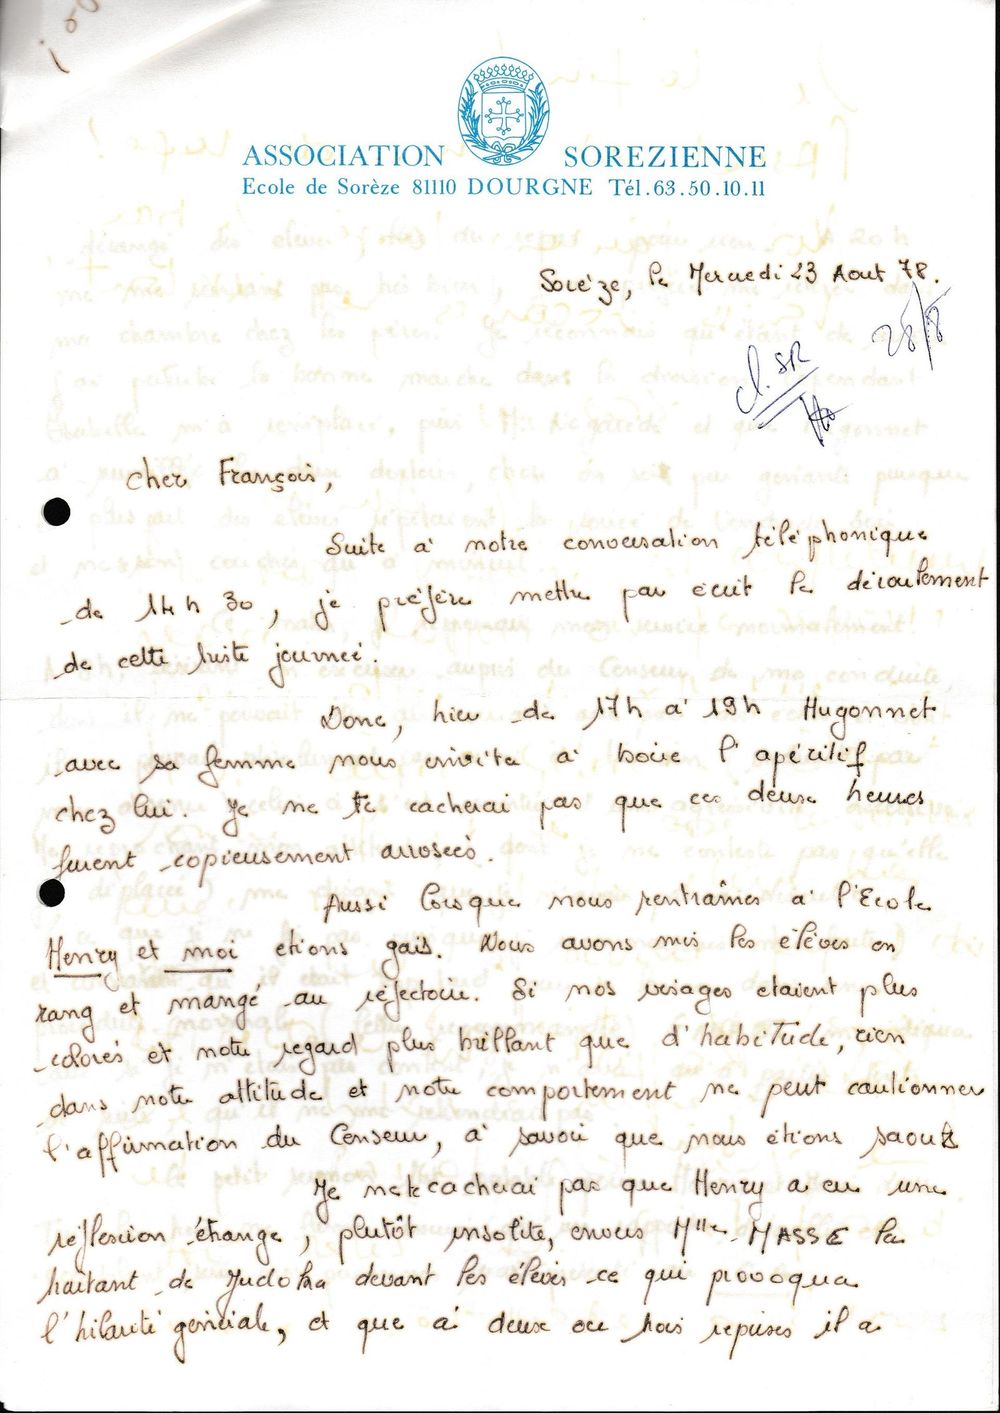 ASSOCIATION SOREZIENNE
Ecole de Sorèze 81110 DOURGNE Tél.63.50.10.11
Sorèze, le Mercredi 23 Aout 78.
28/8
cl. SR
Cher François,
Suite à notre conversation téléphonique
de 14h30, je préfère mettre par écrit le déroulement
de cette triste journée.
Donc, hier de 17h à 19h Hugonnet
avec sa femme nous invita à boire l'apéritif
chez lui. Je ne te cacherai pas que ces deux heures
furent copieusement arrosées.
Aussi lorsque nous rentrâmes à l'Ecole
Henry et moi etions gais. Nous avons mis les élèves en
rang et mangé au réfectoire. Si nos visages etaient plus
colorés et notre regard plus brillant que d'habitude, rien
dans notre attitude et notre comportement ne peut cautionner
l'affirmation du Censeur, à savoir que nous étions saouls
Je ne te cacherai pas que Henry a eu une
réflexion étrange, plutôt insolite, envers Mlle MASSE la
traitant de Judoka devant les élèves ce qui provoqua
l'hilarité générale, et que à deux ou trois reprises il a